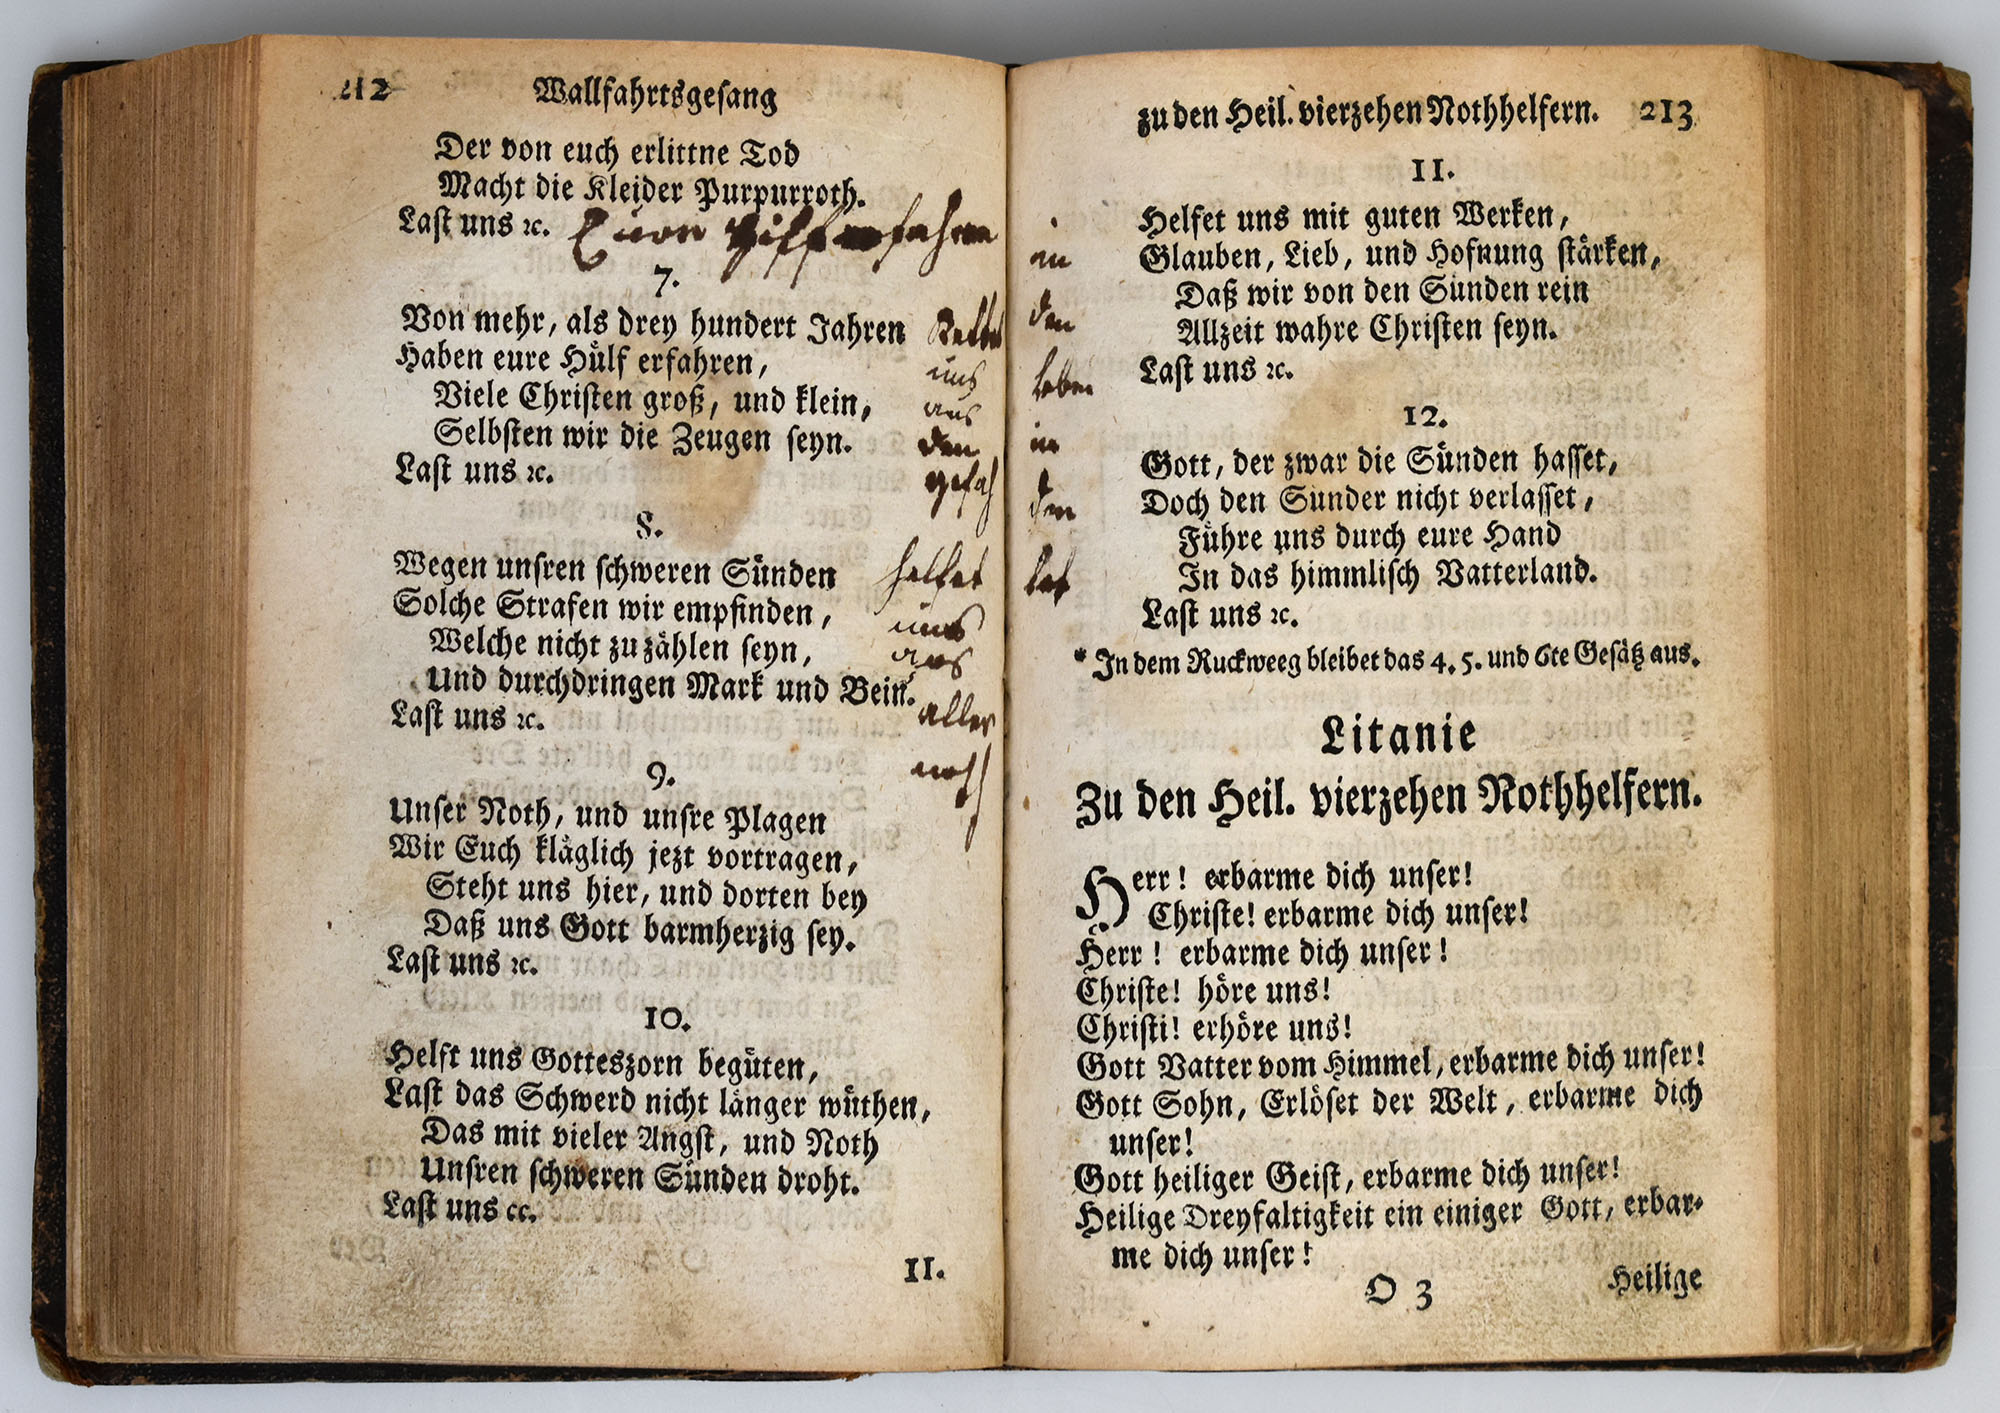 212 Wallfahrtsgesang
Der von euch erlittne Tod
Macht die Kleider Purpurroth.
Last uns ꝛc.
7.
Von mehr, als drey hundert Jahren
Haben eure Hülf erfahren,
Viele Christen groß, und klein,
Selbsten wir die Zeugen seyn.
Last uns ꝛc.
uns
aus
den
gefah
8.
Wegen unsren schweren Sünden
Solche Strafen wir empfinden,
Welche nicht zu zählen seyn,
Und durchdringen Mark und Bein.
Last uns ꝛc.
helfet
uns
aus
aller
noth
9.
Unser Noth, und unsre Plagen
Wir Euch kläglich jezt vortragen,
Steht uns hier, und dorten bey
Daß uns Gott barmherzig sey.
Last uns ꝛc.
10.
Helft uns Gotteszorn begüten,
Last das Schwerd nicht länger wüthen,
Das mit vieler Angst, und Noth
Unsren schweren Sünden droht.
Last uns cc.
11.
zu den Heil. vierzehen Nothhelfern. 213
im
den
leben
in
den
11.
Helfet uns mit guten Werken,
Glauben, Lieb, und Hofnung stärken,
Daß wir von den Sünden rein
Allzeit wahre Christen seyn.
Last uns ꝛc.
12.
Gott, der zwar die Sünden hasset,
Doch den Sünder nicht verlasset,
Führe uns durch eure Hand
In das himmlisch Vatterland.
Last uns ꝛc.
* In dem Ruckweeg bleibet das 4. 5. und 6te Gesätz aus.
Litanie
Zu den Heil. vierzehen Nothhelfern.
Herr! erbarme dich unser!
Christe! erbarme dich unser!
Herr! erbarme dich unser!
Christe! höre uns!
Christi! erhöre uns!
Gott Vatter vom Himmel, erbarme dich unser!
Gott Sohn, Erlöset der Welt, erbarme dich
unser!
Gott heiliger Geist, erbarme dich unser!
Heilige Dreyfaltigkeit ein einiger Gott, erbar-
me dich unser!
O 3 Heilige